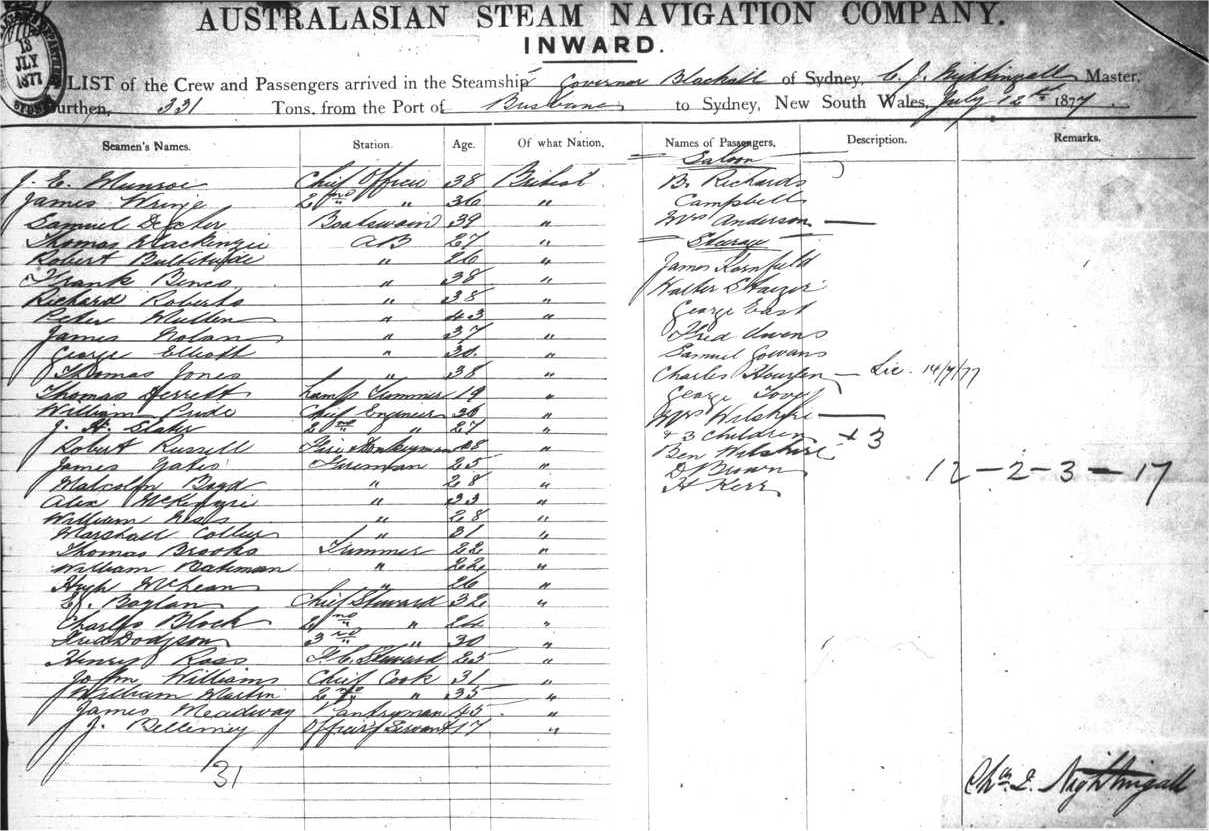 AUSTRALASIAN STEAM NAVIGATION COMPANY.
INWARD.
13
JLY
1877
LIST of the Crew and Passengers arrived in the Steamship Governor Blackall of Sydney, C. J. Nightingall Master,
Burthen, 331 Tons, from the Port of Brisbane to Sydney, New South Wales, July 12th 1877
Seamen's Names. Station. Age. Of what Nation. Names of Passengers. Description. Remarks.
Saloon
J. E. Munroe Chief Officer 38 British B. Richards
James 2nd " 36 " Campbell
Samuel Boatswain 39 " Mrs Anderson
Thomas Mackenzie AB 27 " Steerage
Robert " 26 " James Kornfeldt
Frank " 38 " Walter
Richard Roberts " 38 " George East
Peter Mullen " 43 " Fred Owens
James Nolan " 37 " Samuel Gowans
George Elliott " 30 "
Thomas Jones " 38 " Charles 14/7/77
Thomas Lamp Trimmer 19 " George
William Pride Chief Engineer 36 " Mrs Wilshire
J. H. Slater 2nd " 27 " + 3 Children + 3
Robert Russell " Ben Wilshire
James Yates Fireman 25 " D Brown 12 - 2 - 3 = 17
Malcolm Boyd " 28 " H Kerr
Alex McKenzie " 33 "
William " 28 "
Marshall Collier " 31 "
Thomas Brooks Trimmer 22 "
William Bateman " 22 "
Hugh McLean " 26 "
E. Boylan Chief Steward 32 "
Charles Block 2nd " 24 "
Fred Dodgson 3rd " 30 "
Henry Ross Steward 25 "
John Williams Chief Cook 31 "
William Martin 2nd " 35 "
James Meadway Pantryman 45 "
J. Bellimey Officers Servant 17 "
31
Chas J. Nightingall